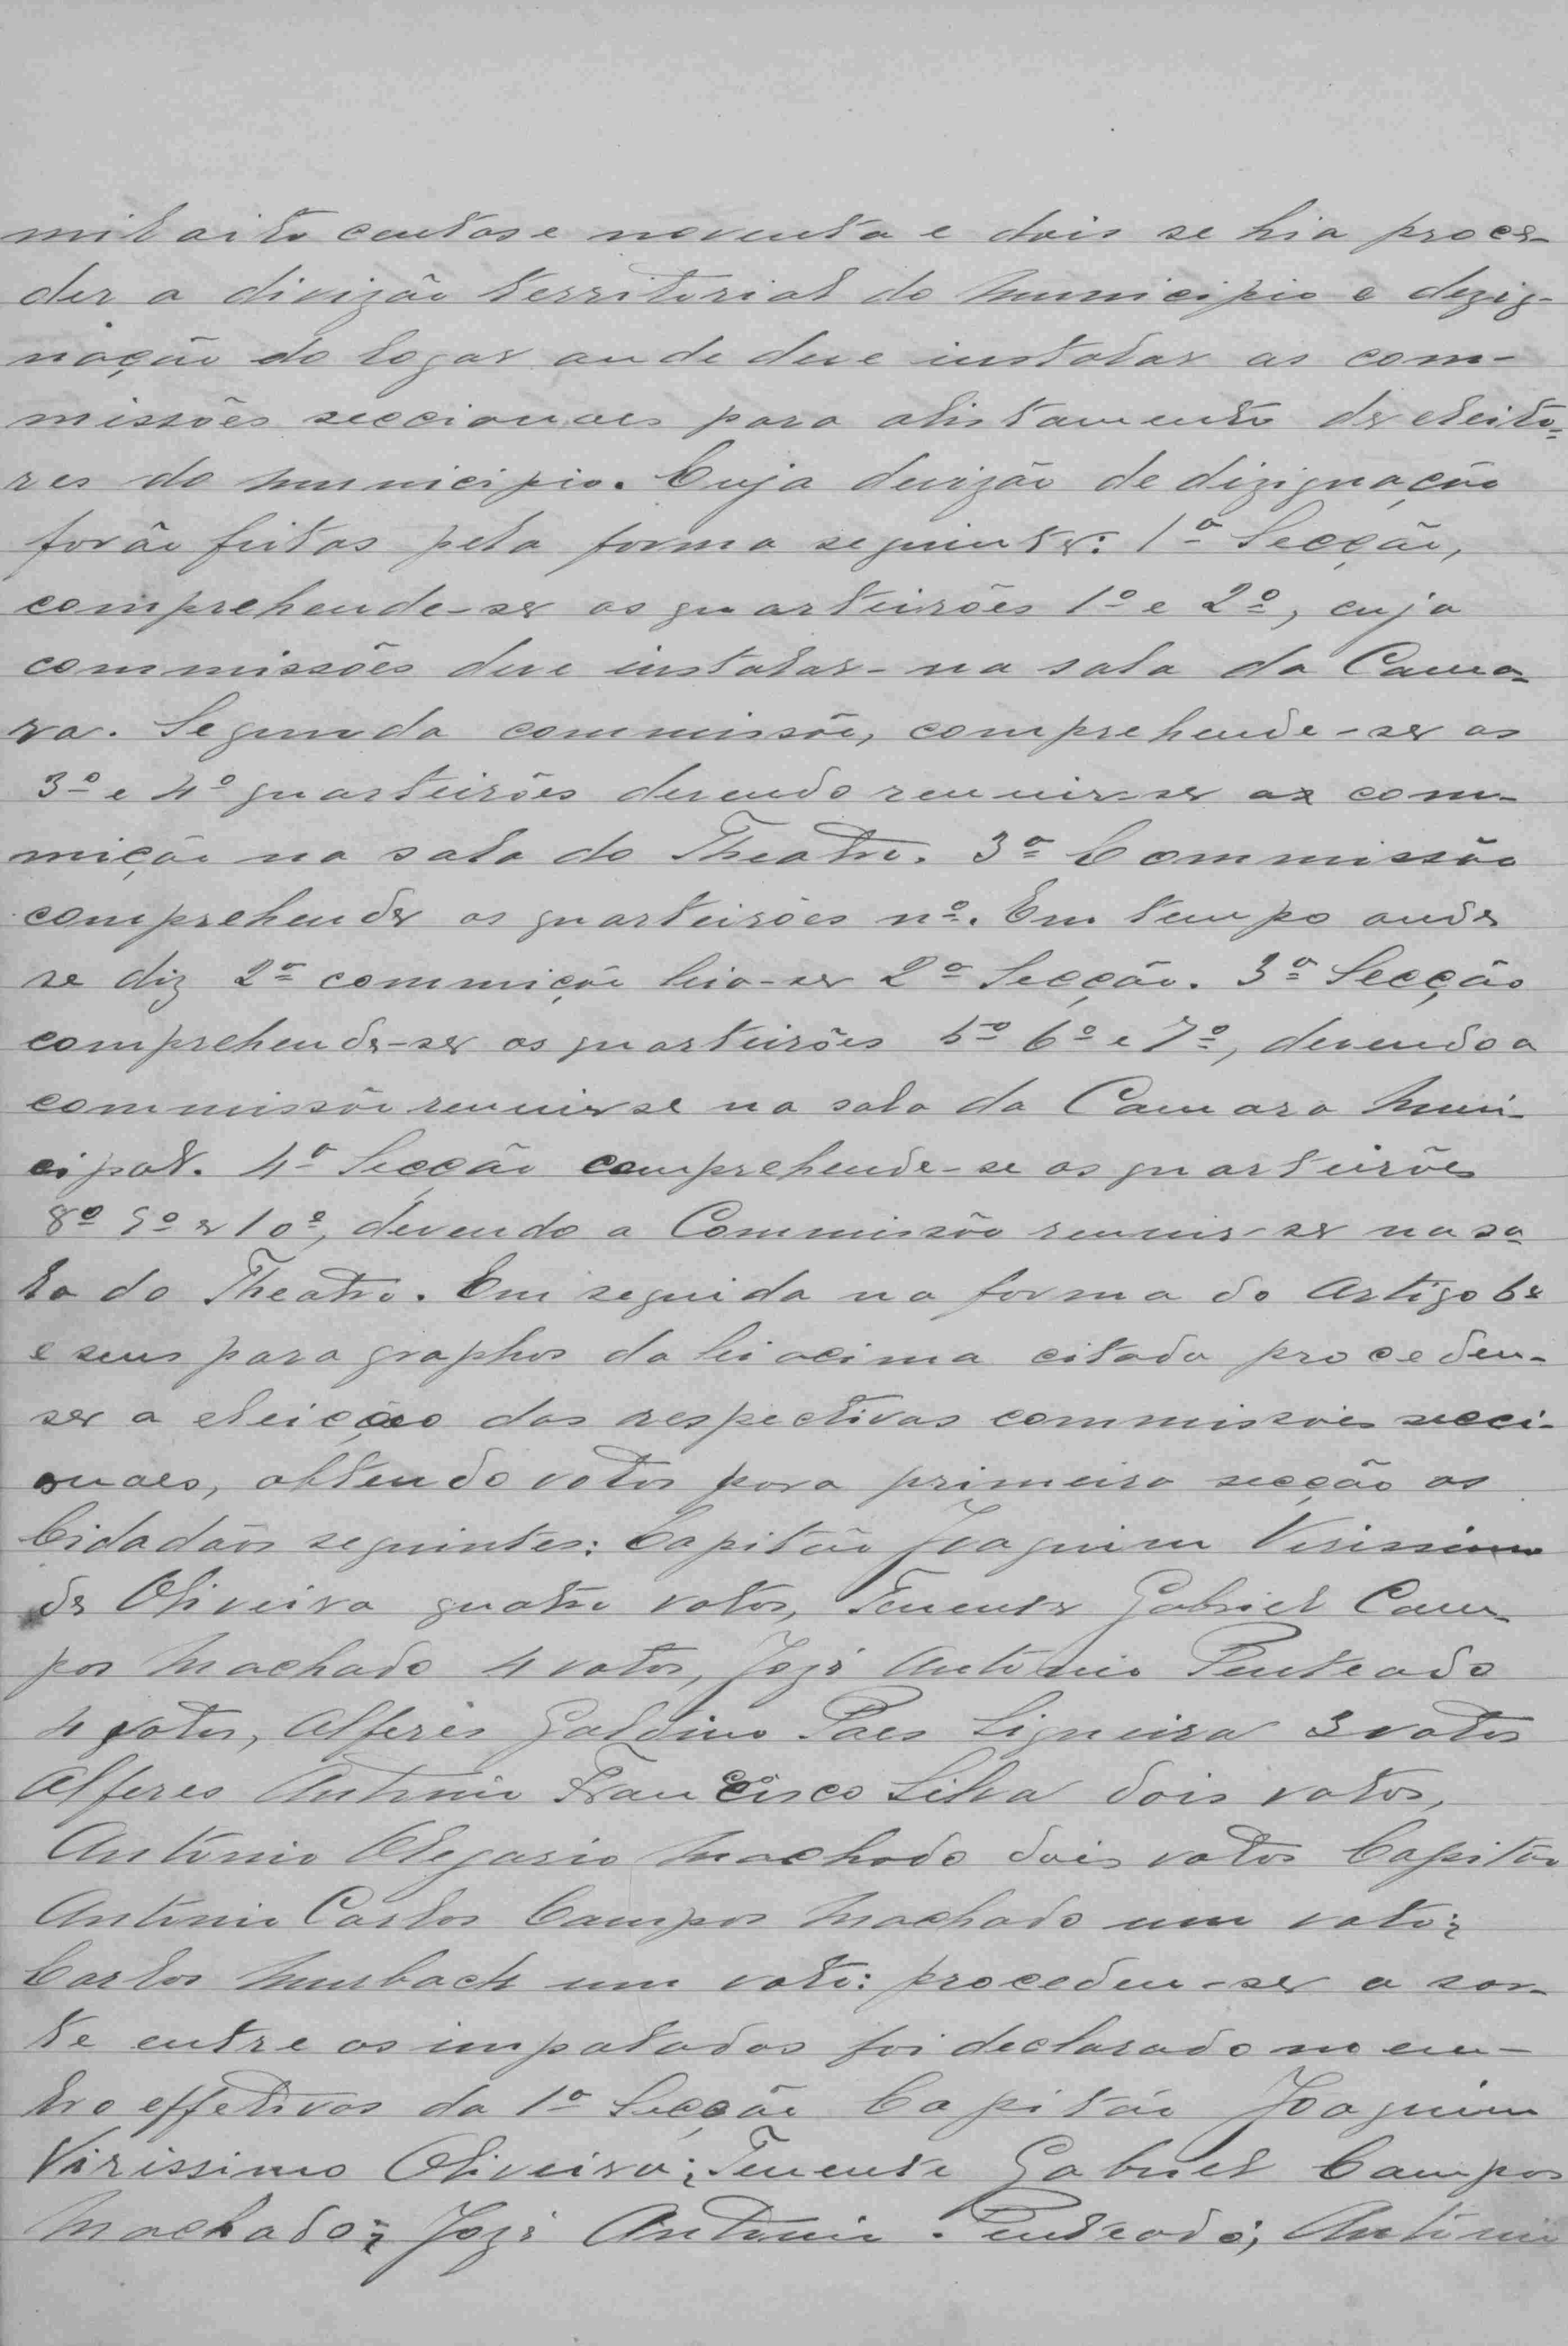 mil oito centos e noventa e dois se hia proce-
der a divizão territorial do Municipio e dezig-
nação do logar onde deve instalar as com-
missões seccionaes para alistamento de eleito-
res do Municipio. Cuja devizão de dizignação
forão feitas pela forma seguinte: 1ª Secção,
comprehende-se os quarteirões 1º e 2º, cuja
commissões deve instalar-na sala da Cama-
ra. Segunda commissão, comprehende-se os
3º e 4º quarteirões devendo reunir-se as com-
mição na sala do Theatro. 3ª Commissão
comprehende os quarteirões nº. Em tempo onde
se diz 2ª commição leia-se 2ª Secção. 3ª Secção
comprehende-se os quarteirões 5º 6º e 7º, devendo a
commissão reunirse na sala da Camara Muni-
cipal. 4ª Secção comprehende-se os quarteirões
8º 9º e 10º, devendo a Commissão reunir-se na sa-
la do Theatro. Em seguida na forma do Artigo 6º
e seus paragraphos da lei acima citada procedeu-
se a eleição das respectivas commissões secci-
onaes, obtendo votos para primeira secção os
Cidadãos seguintes: Capitão Joaquim Virissimo
de Oliveira quatro votos, Tenente Gabriel Cam-
pos Machado 4 votos, Jozé Antonio Penteado
4 votos, Alferes Galdino Paes Siqueira 3 votos
Alferes Antonio Francisco Silva dois votos,
Antonio Olegario Machado dois votos Capitão
Antonio Carlos Campos Machado um voto;
Carlos Murbach um voto: procedeu-se a sor-
te entre os impatados foi declarado mem-
bro effetivos da 1ª Secção Capitão Joaquim
Virissimo Oliveira; Tenente Gabriel Campos
Machado; Jozé Antonio Penteado; Antonio